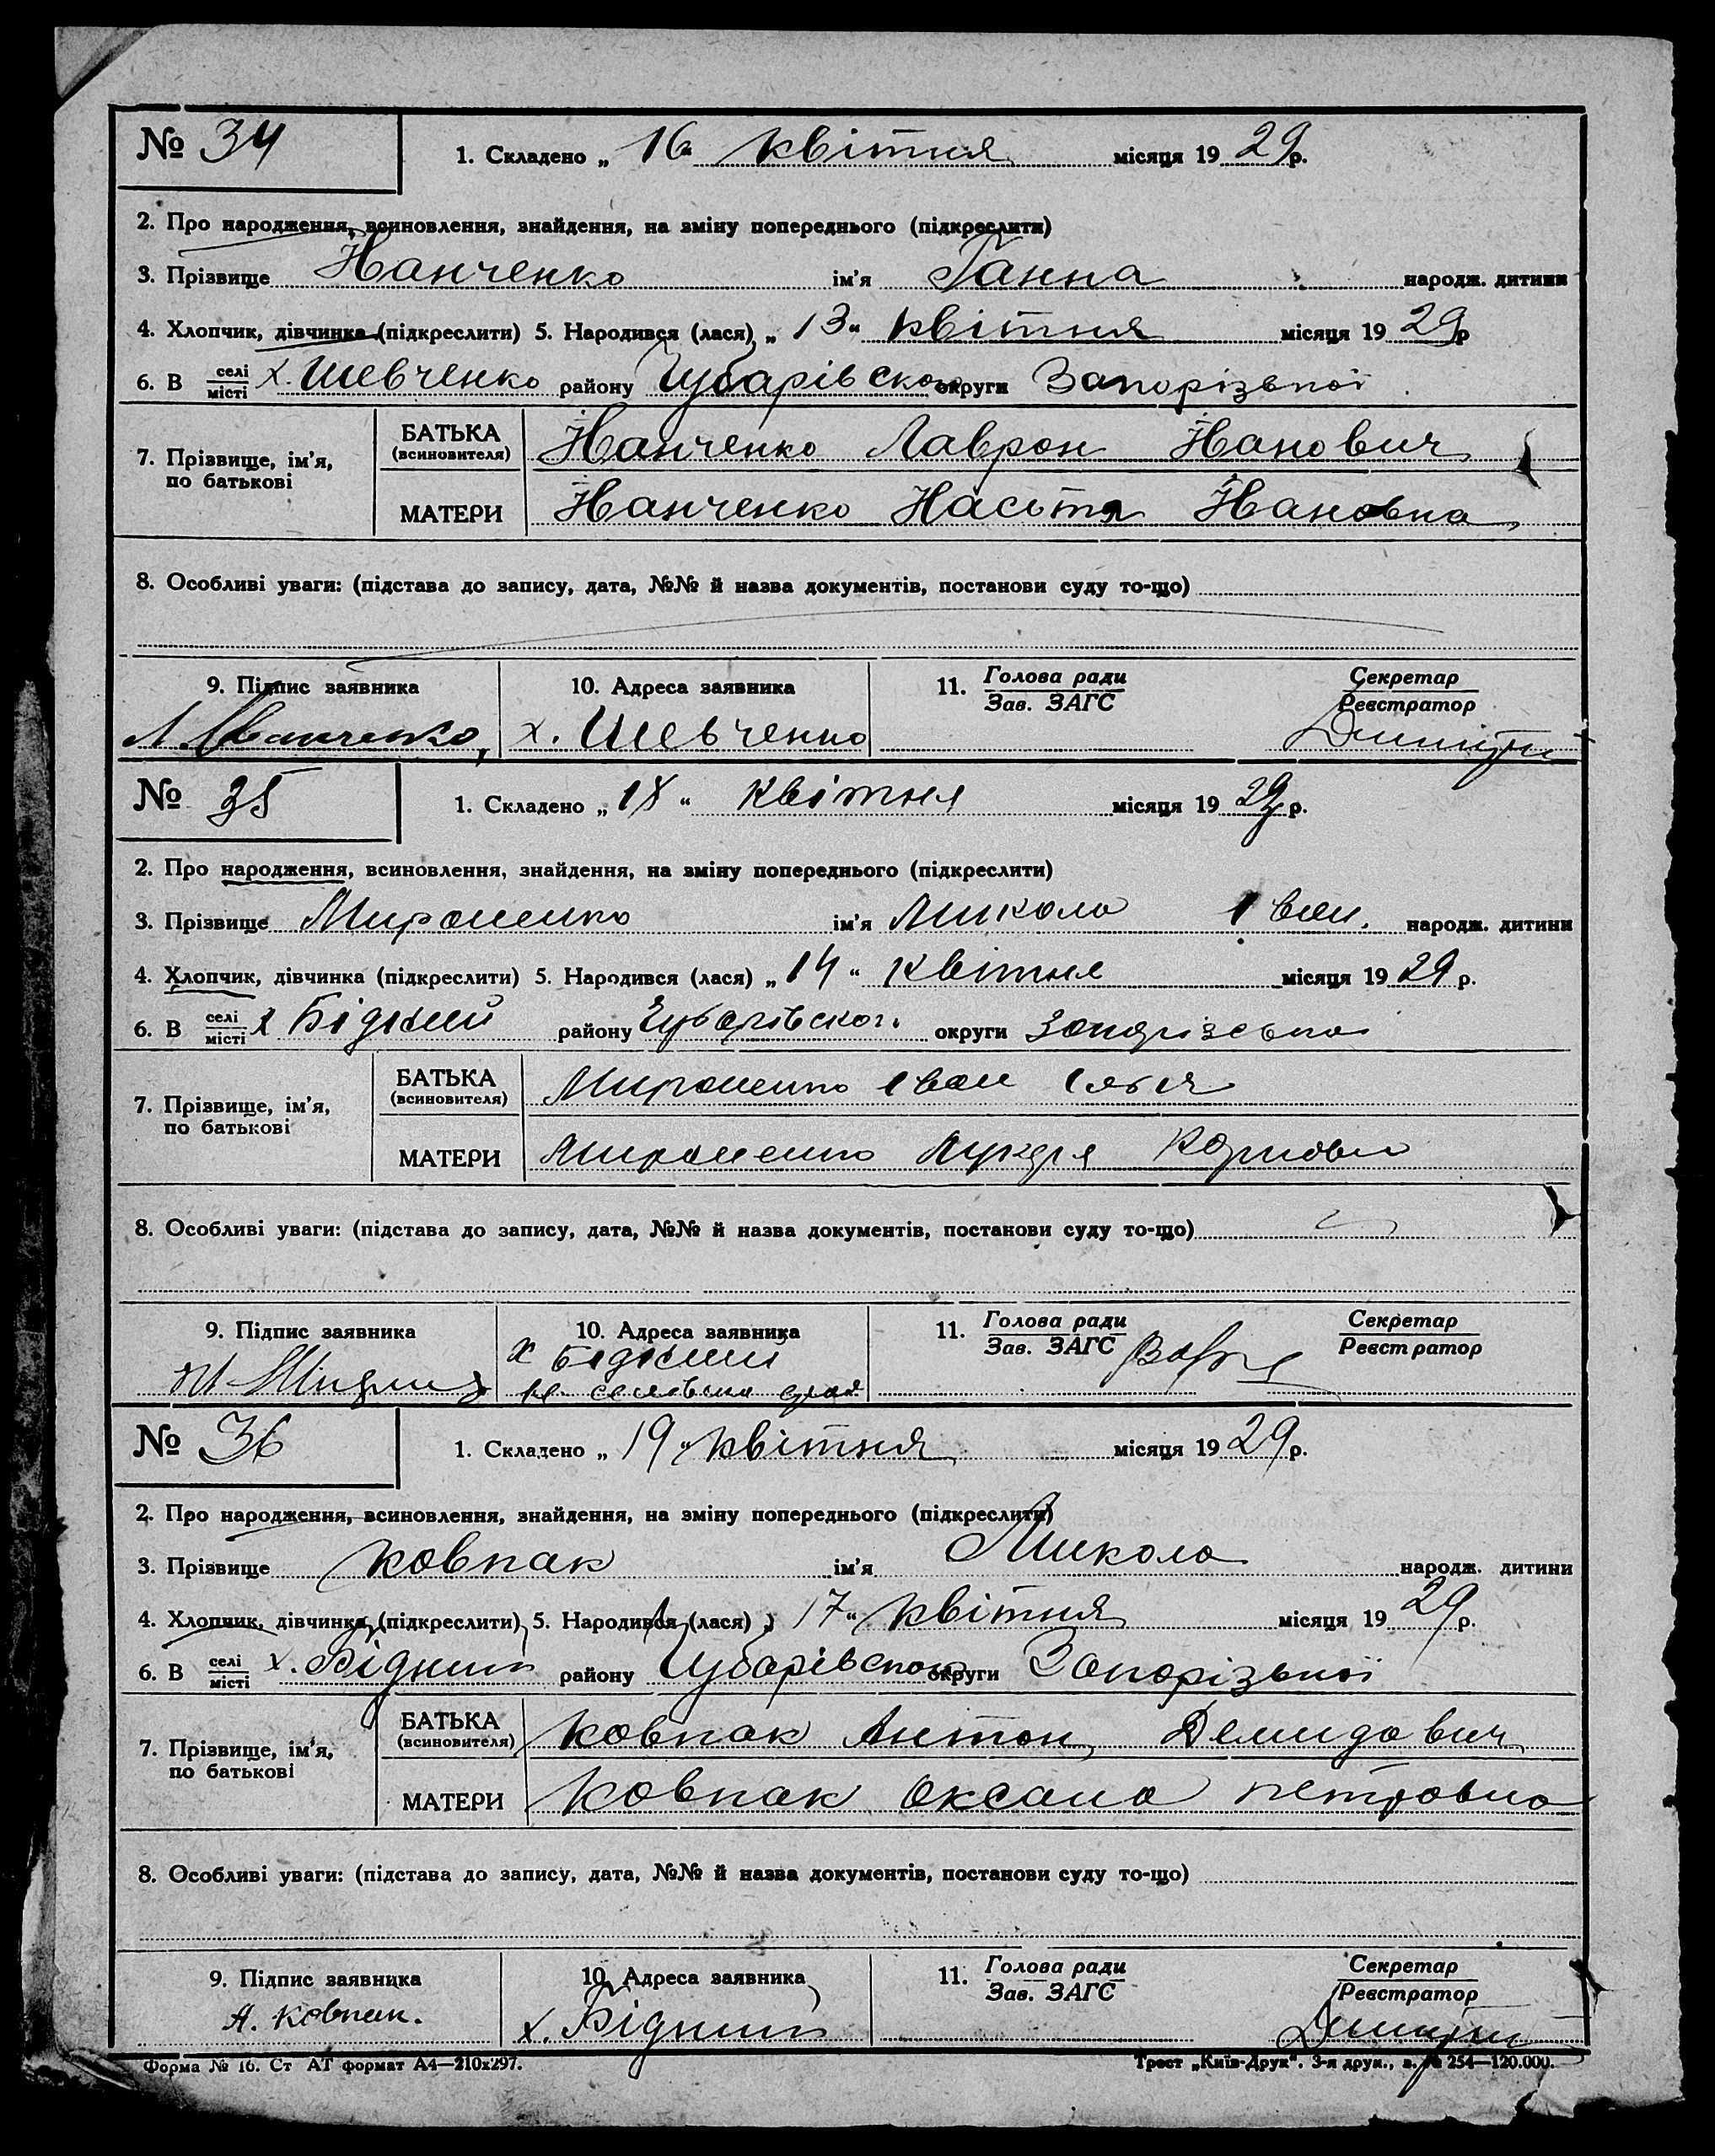 № 34 1. Складено „ 16 “ квітня місяця 19 29 р.
2. Про народження, всиновлення, знайдення, на зміну попереднього (підкреслити)
3. Прізвище Іванченко ім'я Ганна народж. дитини
4. Хлопчик, дівчинка (підкреслити) 5. Народився (лася) „ 13 “ квітня місяця 19 29 р
6. В селі/місті х. Шевченко району Чубарівского округи Запорізької
7. Прізвище, ім'я, по батькові
БАТЬКА (всиновителя) Іванченко Лаврон Іванович
МАТЕРИ Іванченко Настя Івановна
8. Особливі уваги: (підстава до запису, дата, №№ й назва документів, постанови суду то-що)
9. Підпис заявника 10. Адреса заявника 11. Голова ради/Зав. ЗАГС Секретар/Реєстратор
Л. Іванченко х. Шевченко
№ 35 1. Складено „ 18 “ квітня місяця 19 29 р.
2. Про народження, всиновлення, знайдення, на зміну попереднього (підкреслити)
3. Прізвище Мироненко ім'я Микола Іван. народж. дитини
4. Хлопчик, дівчинка (підкреслити) 5. Народився (лася) „ 14 “ квітня місяця 19 29 р.
6. В селі/місті х Бідний району Чубарівского округи Запорізької
7. Прізвище, ім'я, по батькові
БАТЬКА (всиновителя) Мироненко Іван
МАТЕРИ Мироненко Лукеря
8. Особливі уваги: (підстава до запису, дата, №№ й назва документів, постанови суду то-що)
9. Підпис заявника 10. Адреса заявника 11. Голова ради/Зав. ЗАГС Секретар/Реєстратор
х Бідний
№ 36 1. Складено „ 19 “ квітня місяця 19 29 р.
2. Про народження, всиновлення, знайдення, на зміну попереднього (підкреслити)
3. Прізвище Ковпак ім'я Микола народж. дитини
4. Хлопчик, дівчинка (підкреслити) 5. Народився (лася) „ 17 “ квітня місяця 19 29 р.
6. В селі/місті х. Бідний району Чубарівского округи Запорізької
7. Прізвище, ім'я, по батькові
БАТЬКА (всиновителя) Ковпак Антон Демидович
МАТЕРИ Ковпак Оксана Петровна
8. Особливі уваги: (підстава до запису, дата, №№ й назва документів, постанови суду то-що)
9. Підпис заявника 10. Адреса заявника 11. Голова ради/Зав. ЗАГС Секретар/Реєстратор
А. Ковпак. х. Бідний
Форма № 16. Ст АТ формат А4—210х297. Трест „Київ-Друк". 3-я друк., з. № 254—120.000.